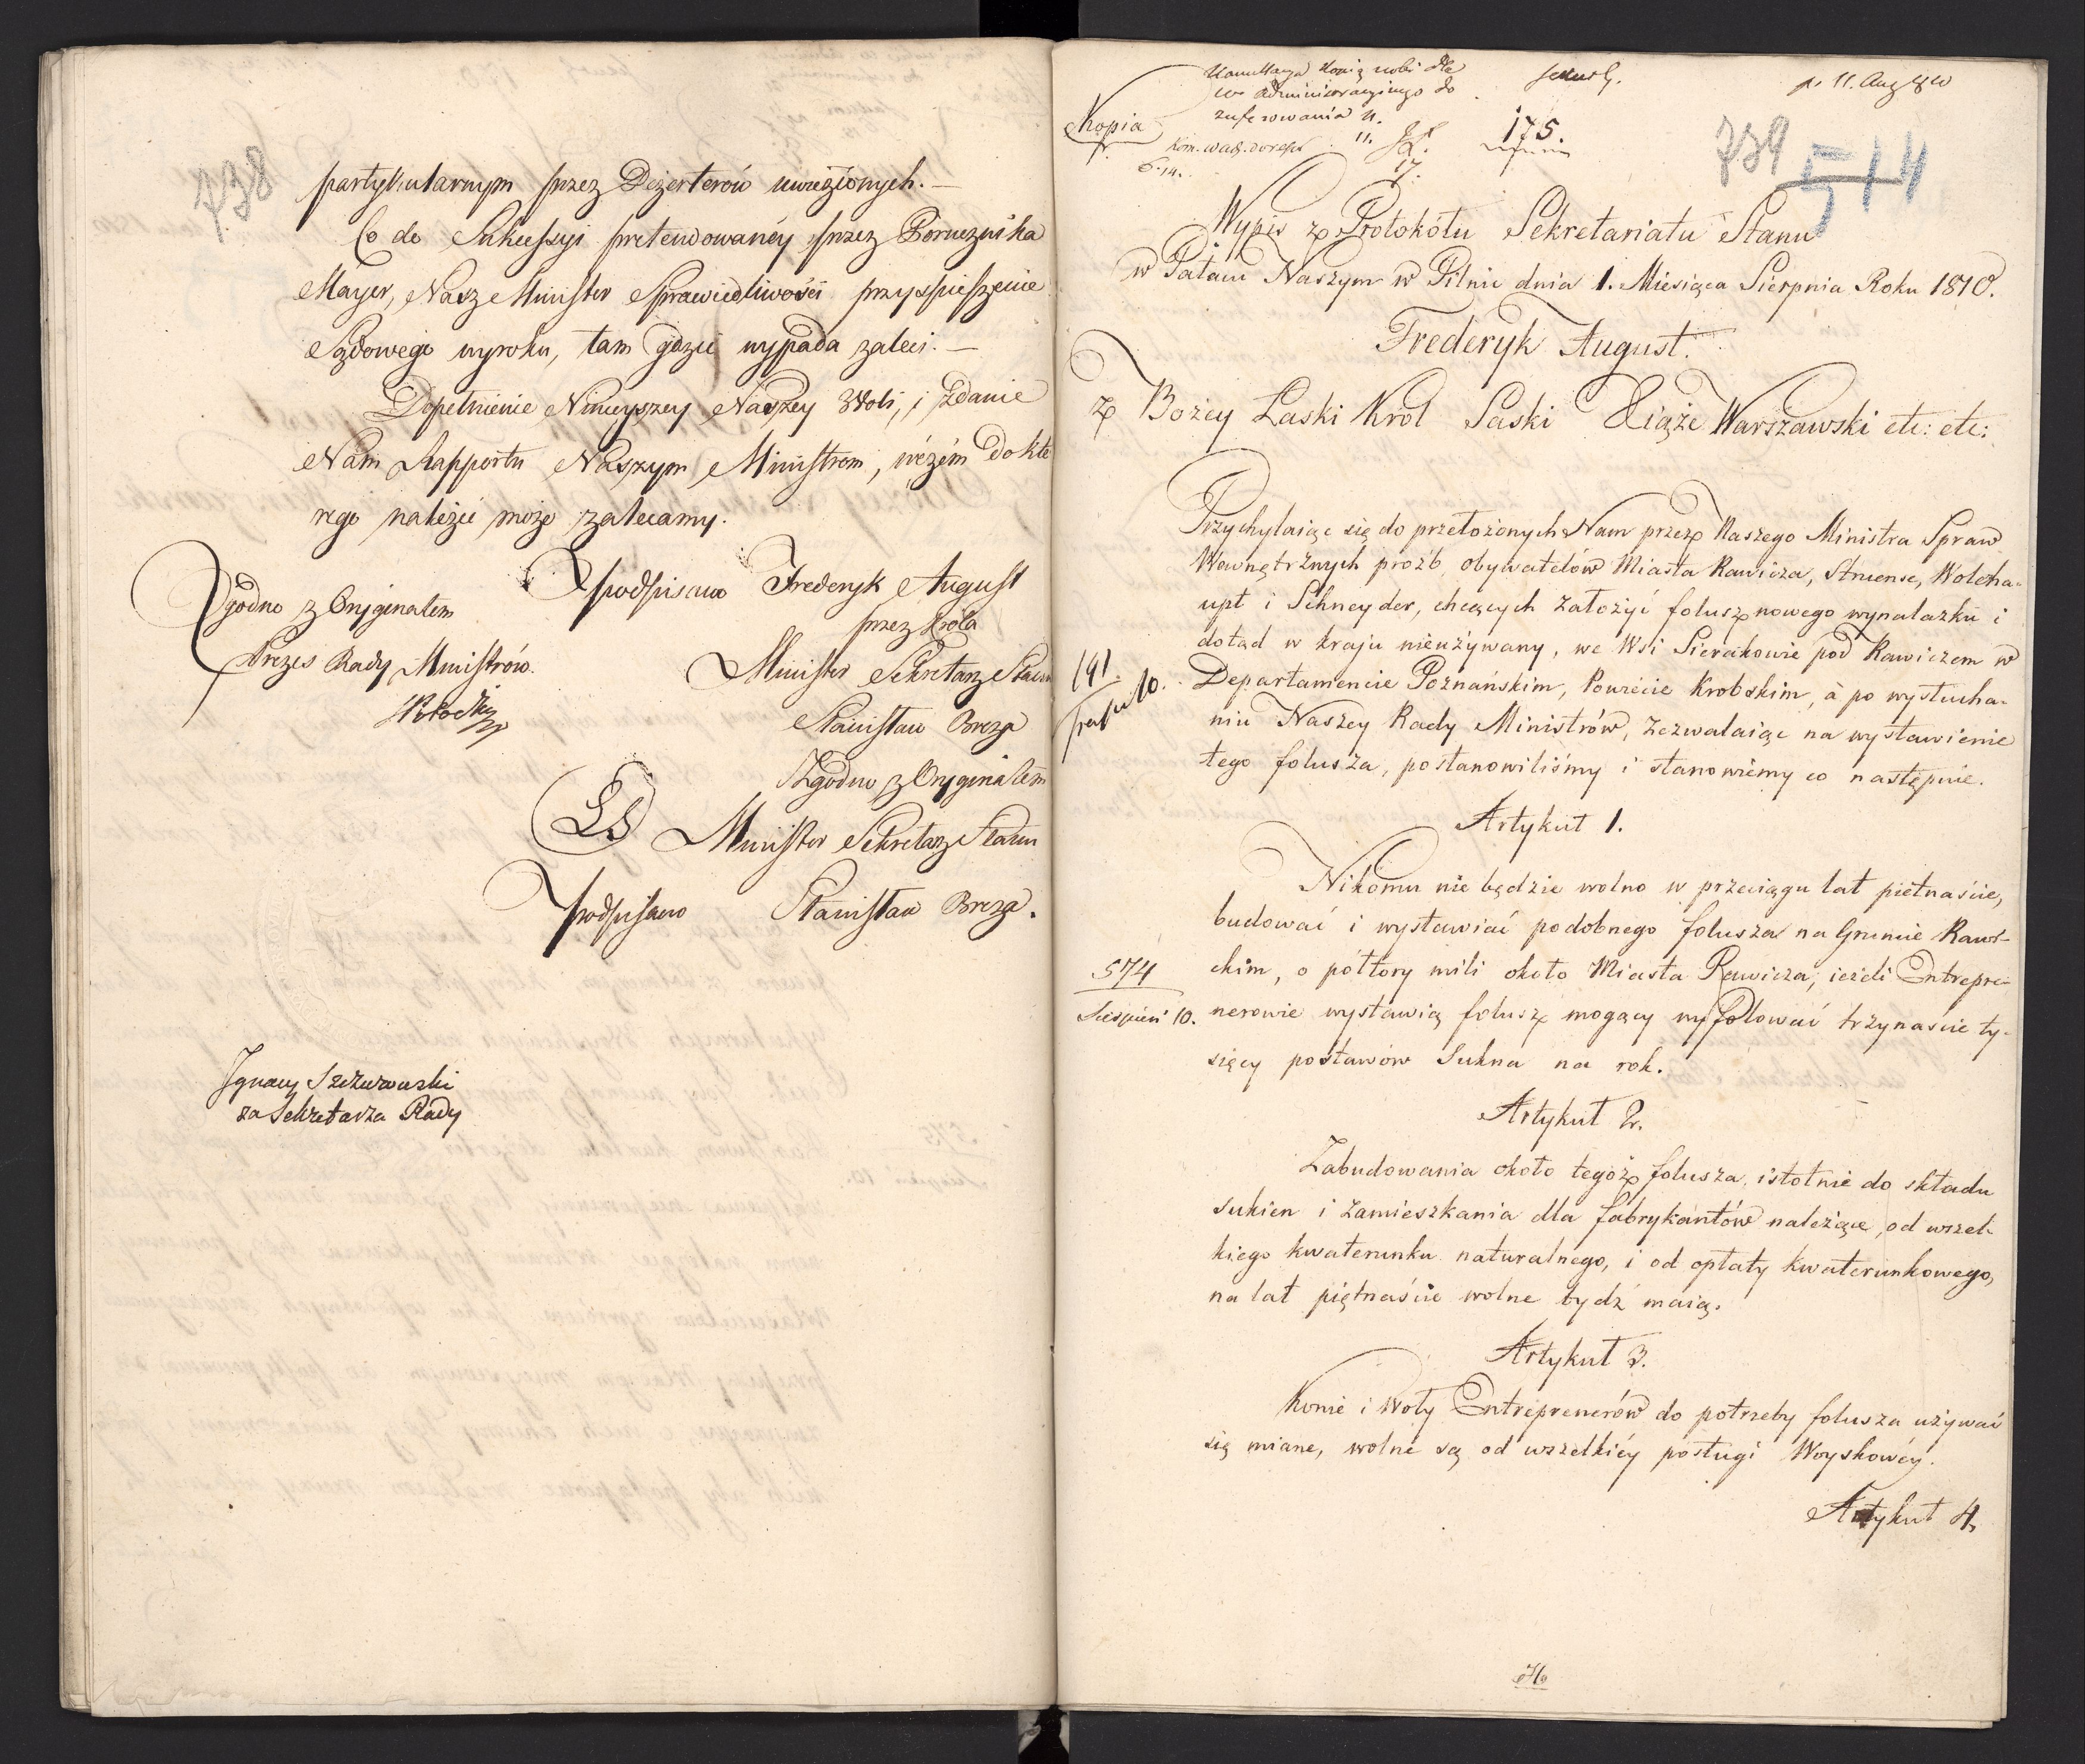 738
partykularnym przez Dezerterów uwiezionych. —
Co do Sukcessyi pretendowanéy przez Porucznika
Mayer, Nasz Minister Sprawiedliwości przyspieszenie
Sądowego wyroku, tam gdzie wypada zaleci. —
Dopełnienie Ninieyszey Naszey Woli, i zdanie
Nam Rapportu Naszym Ministrom, wczém do któ
rego należeć może zalecamy.
podpisano Frederyk August
przez Króla
Minister Sekretarz Stanu
Stanisław Breza
Zgodno z Oryginałem
Prezes Rady Ministrów.
Zgodno z Oryginałem
LS
Minister Sekretarz Stanu
podpisano Stanisław Breza.
Ignacy Szczurowski
za Sekretarza Rady
Kopia
175.
739
514
Wypis z Protokółu Sekretariatu Stanu
w Pałacu Naszym w Pilnic dnia 1. Miesiąca Sierpnia Roku 1810.
Frederyk August.
z Bożey Łaski Król Saski Xiąże Warszawski etc: etc:
Przychylaiąc się do przełożonych Nam przez Naszego Ministra Spraw
Wewnętrznych proźb, obywatelów Miasta Rawicza, Struense, Wolcha-
upt i Schneyder, chcących założyć folusz nowego wynalazku i
dotąd w kraju nieużywany, we Wsi Sierakowie pod Rawiczem w
Departamencie Poznańskim, Powiecie Krobskim, a po wysłucha-
niu Naszey Rady Ministrów, zezwalaiąc na wystawienie
tego folusza, postanowiliśmy i stanowiemy co następuie.
191.
Artykuł 1.
Nikomu nie będzie wolno w przeciągu lat piętnaście,
budować i wystawiać podobnego folusza na Gruncie Rawi-
ckim, o półtory mili około Miasta Rawicza, ieżeli Entrepre-
nerowie wystawią folusz mogący wyfolować trzynaście ty-
sięcy postawów Sukna na rok.
574
Sierpień 10.
Artykuł 2.
Zabudowania około tegóż folusza, istotnie do składu
sukien i zamieszkania dla fabrykantów należące, od wszel-
kiego kwaterunku naturalnego, i od opłaty kwaterunkowego,
na lat piętnaście wolne bydź maią.
Artykuł 3.
Konie i Woły Entreprenerów do potrzeby folusza używać
się miane, wolne są od wszelkiéy posługi Woyskowéy.
Artykuł 4.